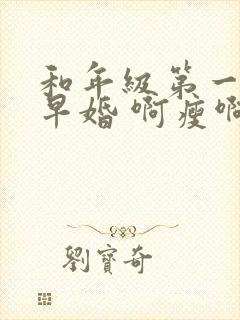 和年級第一
早婚 啊瘦啊
劉寶奇